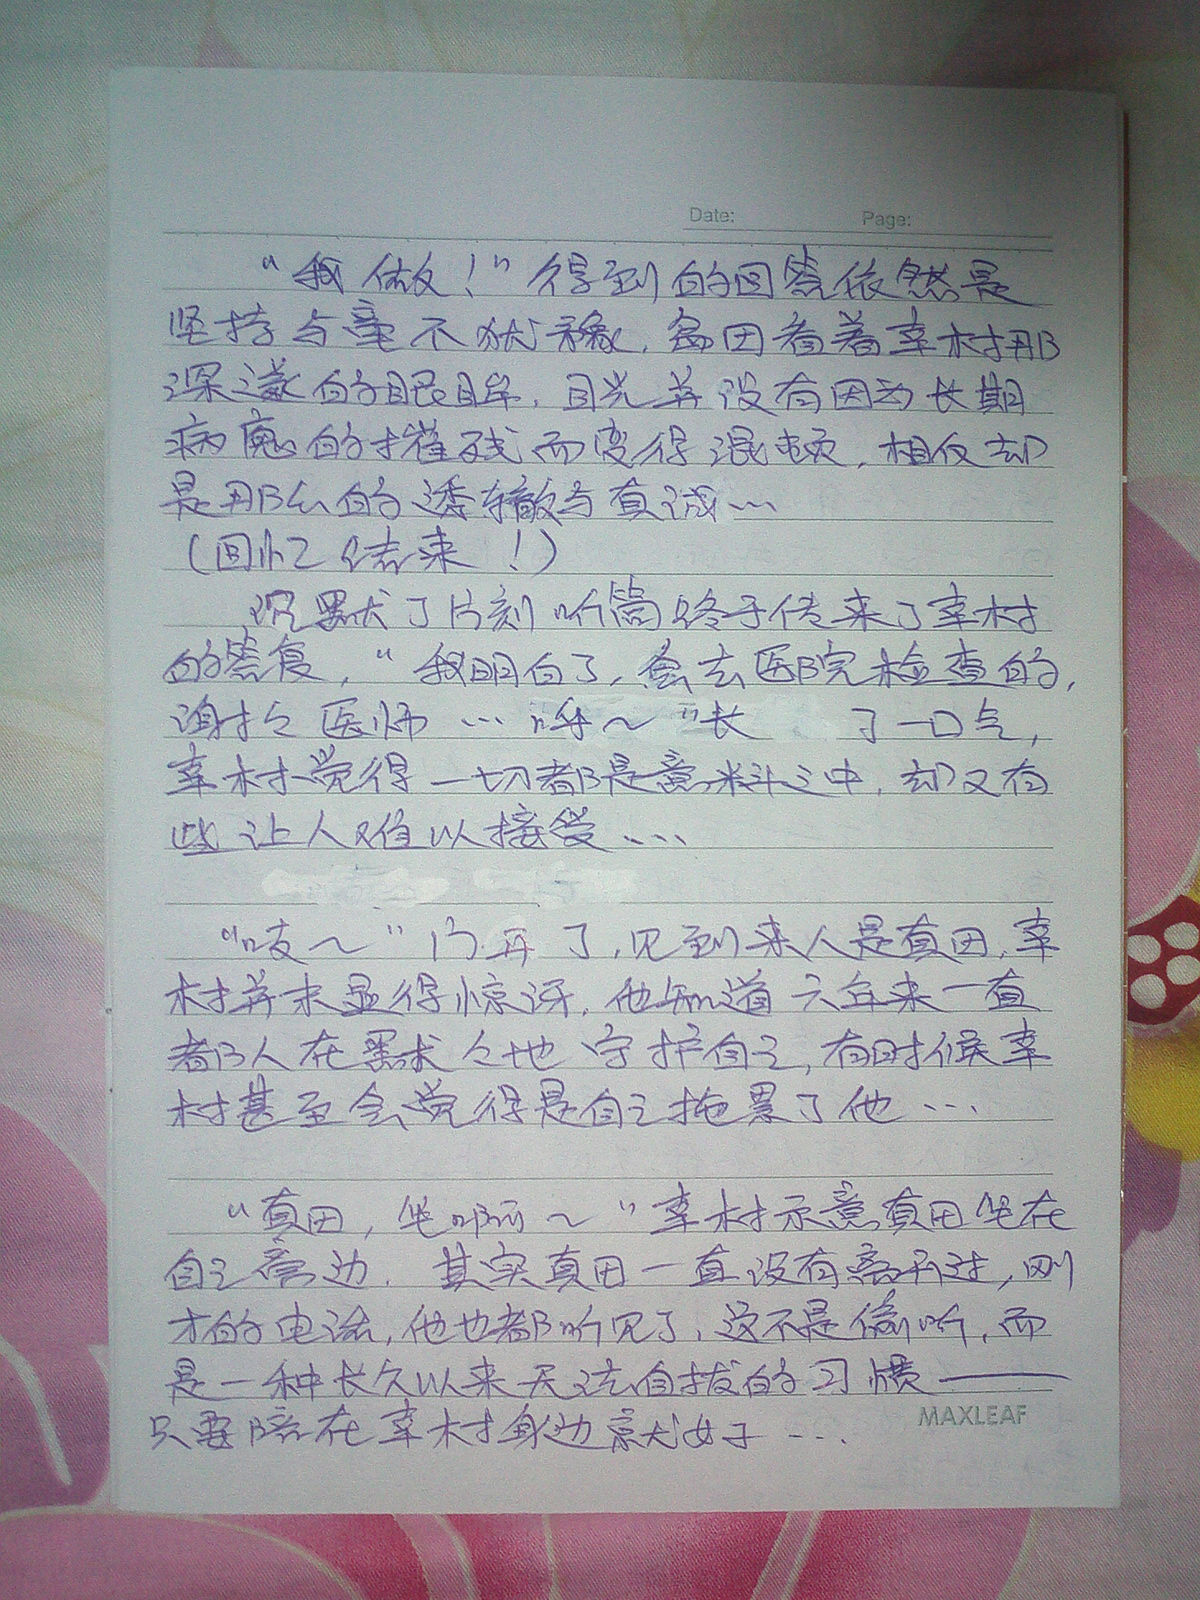 Date: Page:
“我做！”得到的回答依然是
坚持与毫不犹豫，真田看着幸村那
深邃的眼眸，目光并没有因为长期
病魔的摧残而变得混顿，相反却
是那么的透辙与真诚…
（回忆结束！）
沉默了片刻听筒终于传来了幸村
的答复，“我明白了，会去医院检查的，
谢谢医师…呼～”长 了一口气，
幸村觉得一切都是意料之中，却又有
些让人难以接受…
“吱～”门开了，见到来人是真田，幸
村并未显得惊讶，他知道六年来一直
都人在默默地守护自己，有时候幸
村甚至会觉得是自己拖累了他…
“真田，坐啊～”幸村示意真田坐在
自己旁边．其实真田一直没有离开过，刚
才的电话，他也都听见了，这不是偷听，而
是一种长久以来无法自拔的习惯——
只要陪在幸村身边就好…
MAXLEAF